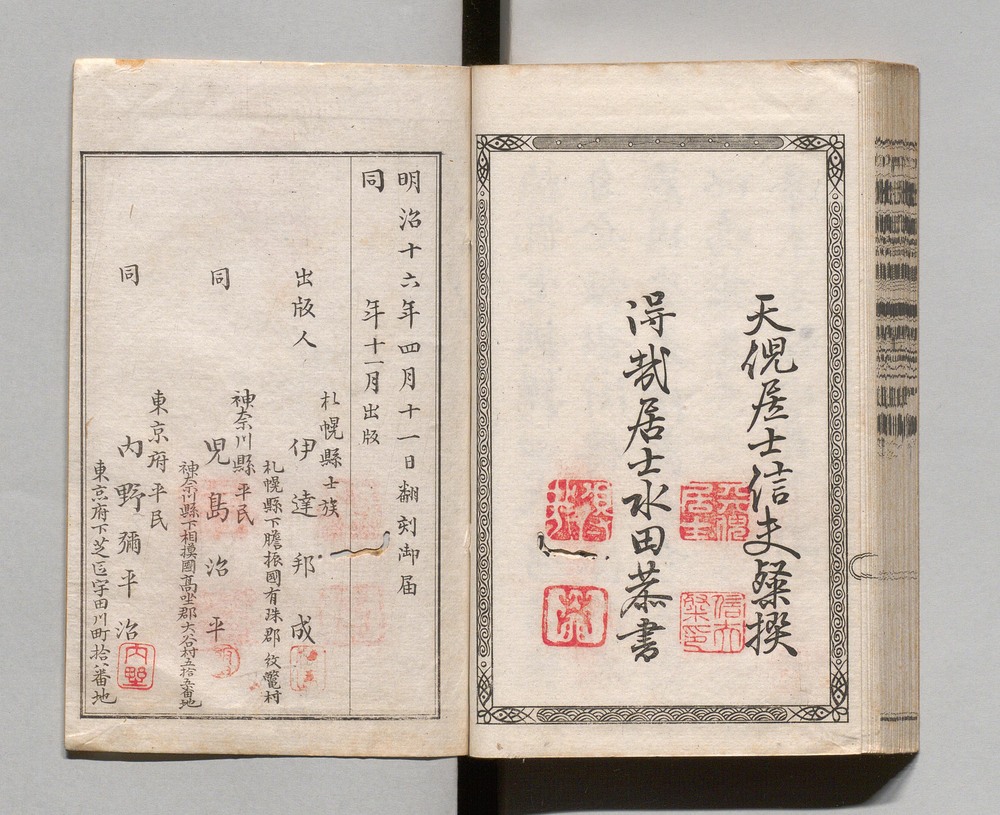 天倪居士信夫粲撰
得哉居士水田恭書
明治十六年四月十一日翻刻御届
同 年十一月出版
札幌縣士族
出版人 伊達邦成
札幌縣下膽振國有珠郡紋鼈村
神奈川縣平民
同 児島治平
神奈川縣下相摸國高坐郡大谷村五拾五番地
東京府平民
同 内野彌平治
東京府下芝區字田川町拾八番地
天倪居士
信夫粲印
内野